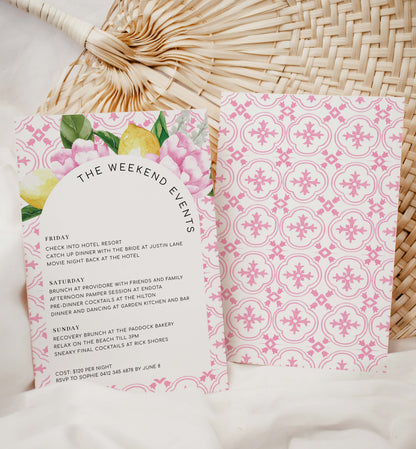 THE WEEKEND EVENTS
FRIDAY
CHECK INTO HOTEL RESORT
CATCH UP DINNER WITH THE BRIDE AT JUSTIN LANE
MOVIE NIGHT BACK AT THE HOTEL
SATURDAY
BRUNCH AT PROVIDORE WITH FRIENDS AND FAMILY
AFTERNOON PAMPER SESSION AT ENDOTA
PRE-DINNER COCKTAILS AT THE HILTON
DINNER AND DANCING AT GARDEN KITCHEN AND BAR
SUNDAY
RECOVERY BRUNCH AT THE PADDOCK BAKERY
RELAX ON THE BEACH TILL 3PM
SNEAKY FINAL COCKTAILS AT RICK SHORES
COST: $120 PER NIGHT
RSVP TO SOPHIE 0412 345 678 BY JUNE 8